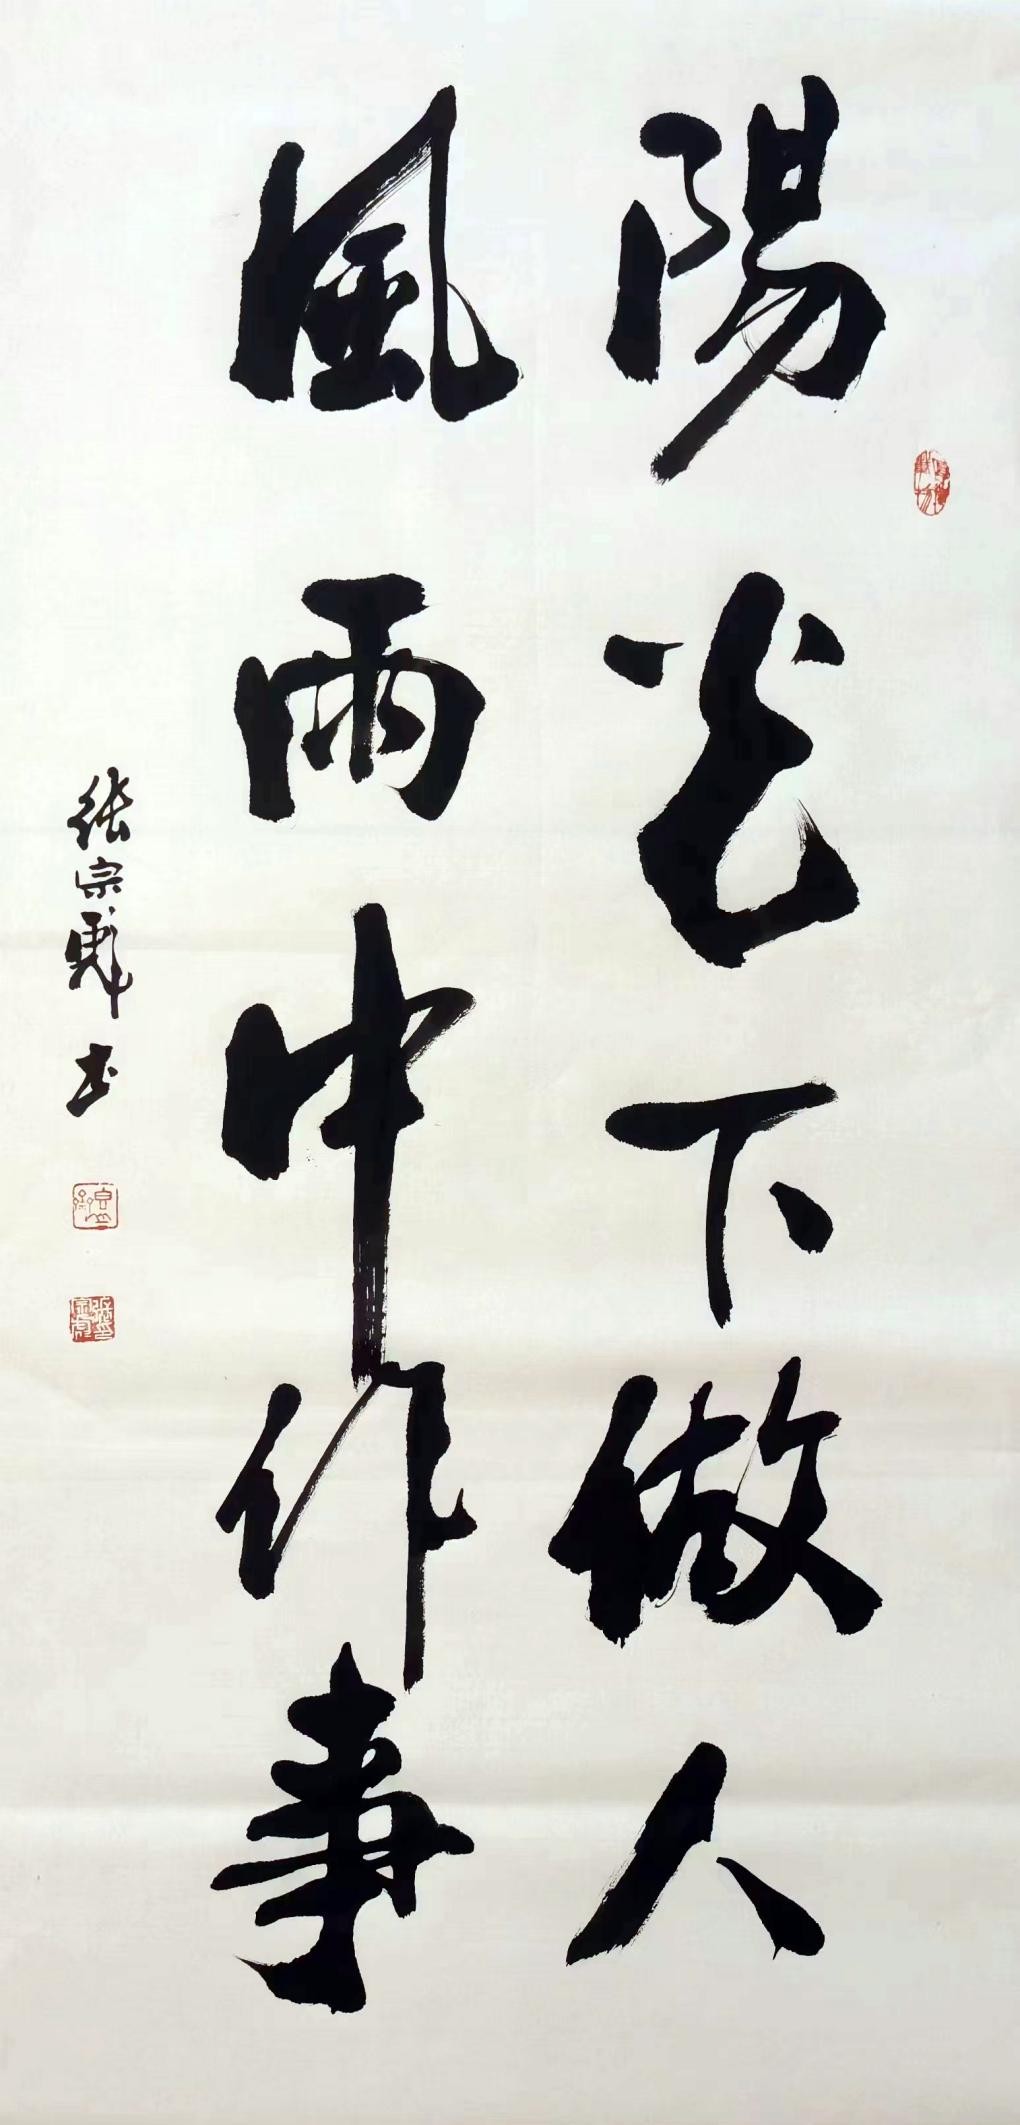 陽光下做人
風雨中作事
張宗彪书